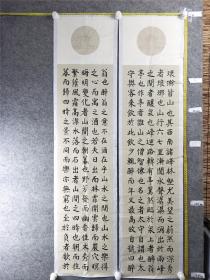 環滁皆山也其西南諸峰林壑尤美望之蔚而深
者琅琊也山行六七里漸聞水聲潺潺而瀉出於兩峰
之間者釀泉也峰迴路轉有亭翼然臨於泉上者醉翁
亭也作亭者誰山之僧智僊也名之者誰太守自謂也太
守與客來飲於此飲少輒醉而年又最高故自號曰醉
翁也醉翁之意不在酒在乎山水之間也山水之樂得
之心而寓之酒也若夫日出而林霏開雲歸而巖穴暝
晦明變化者山間之朝暮也野芳發而幽香佳木秀而
繁陰風霜高潔水落而石出者山間之四時也朝而往
暮而歸四時之景不同而樂亦無窮也至於負者歌於